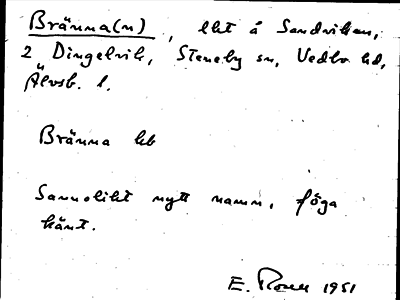 Bränna(n), lht å Sandviken,
2 Dingelvik, Steneby sn, Vedbo hd,
Älvsb. l.
Bränna hb
Sannolikt nytt namn, föga
känt.
E. 1951